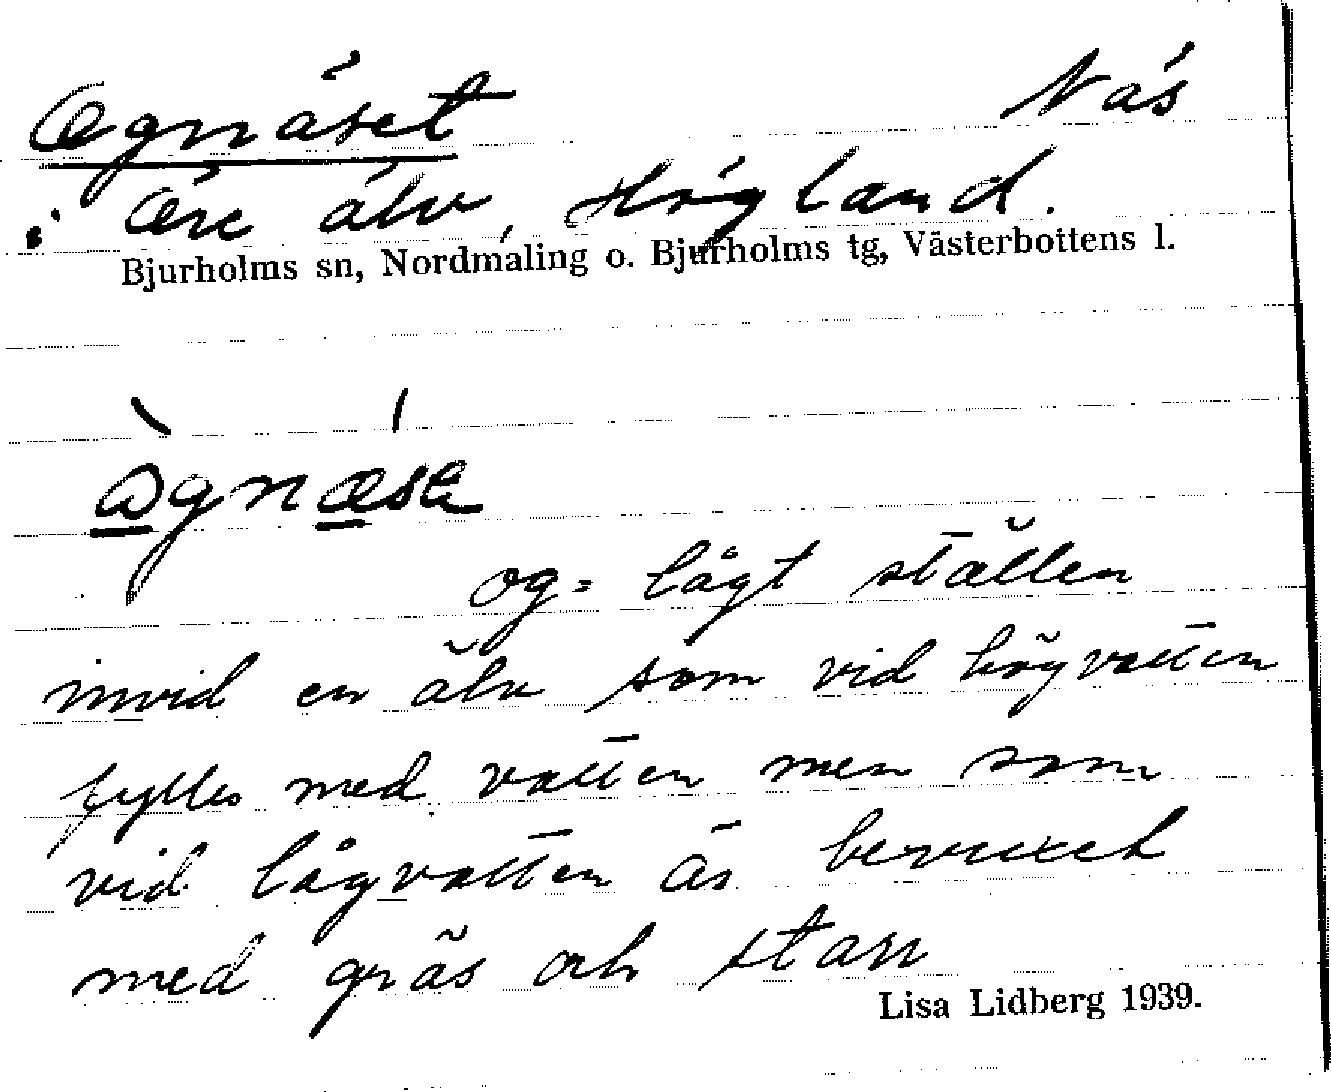 Ognäset Näs
i Öre älv, Högland.
Bjurholms sn, Nordmaling o. Bjurholms tg, Västerbottens l.
og = lågt ställen
invid en älv som vid högvatten
fylles med vatten men som
vid lågvatten är bevuxet
med gräs och starr
Lisa Lidberg 1939.